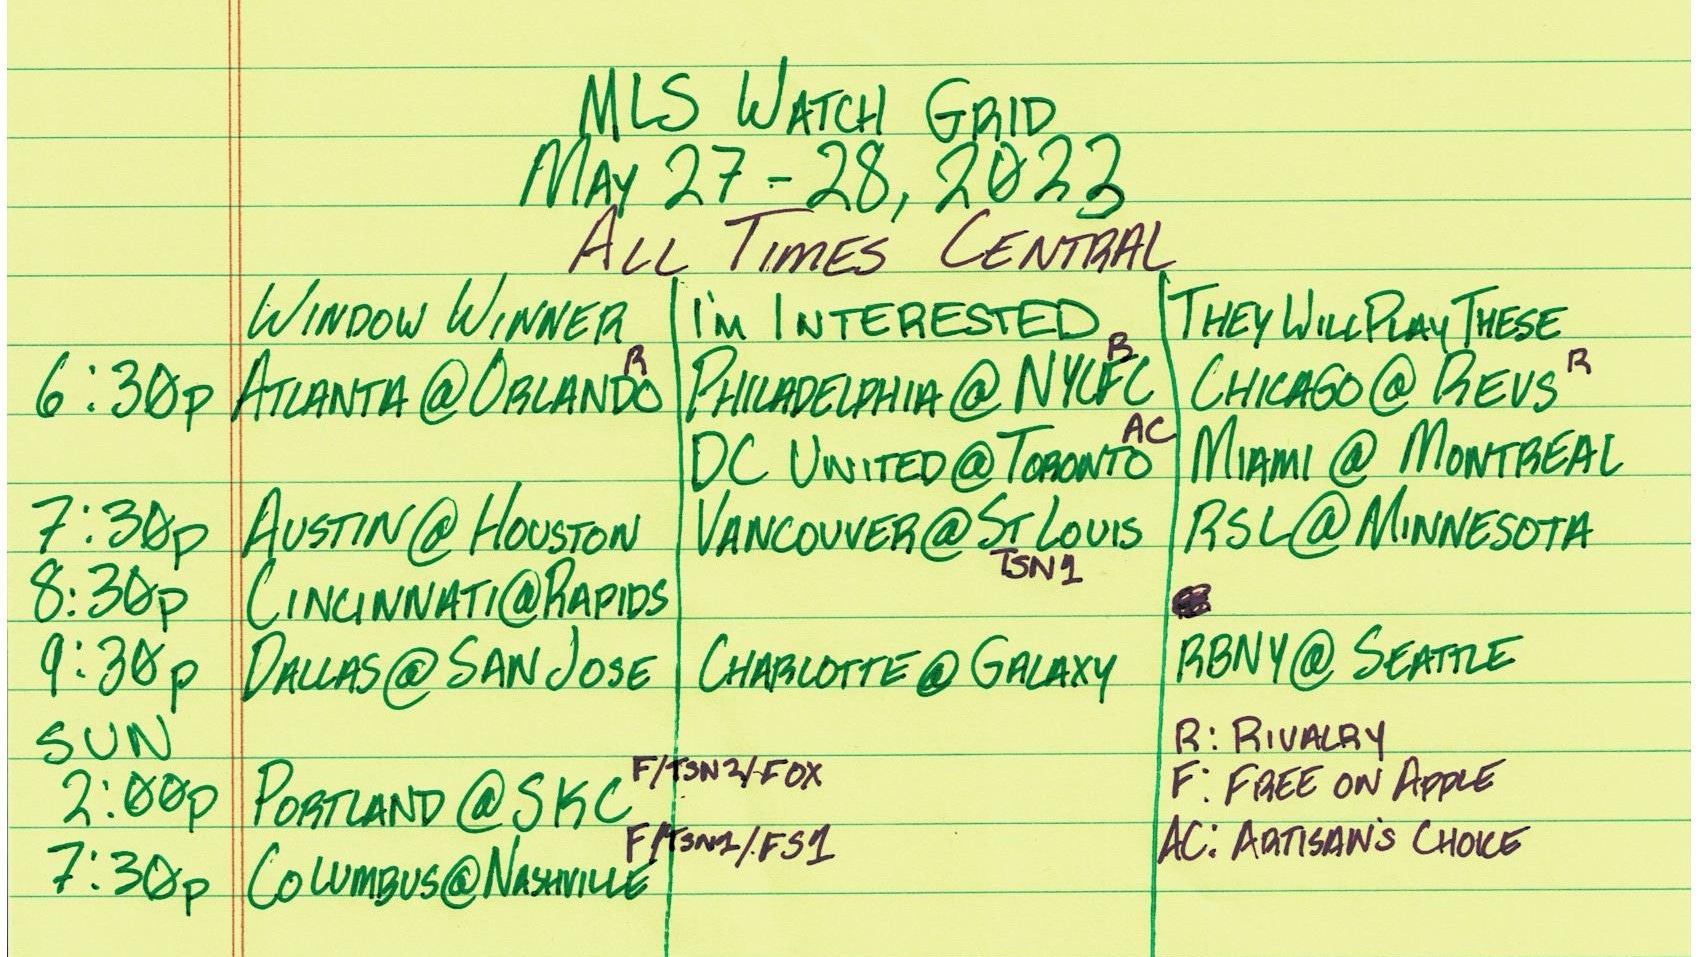 MLS WATCH GRID
MAY 27-28, 2023
ALL TIMES CENTRAL
WINDOW WINNER I'm INTERESTED THEY WILL PLAY THESE
6:30p ATLANTA @ ORLANDO R PHILADELPHIA @ NYCFC R CHICAGO @ REVS R
DC UNITED @ TORONTO AC MIAMI @ MONTREAL
7:30p AUSTIN @ HOUSTON VANCOUVER @ ST LOUIS TSN1 RSL @ MINNESOTA
8:30p CINCINNATI @ RAPIDS
9:30p DALLAS @ SAN JOSE CHARLOTTE @ GALAXY RBNY @ SEATTLE
SUN R: RIVALRY
2:00p PORTLAND @ SKC F/TSN2/FOX F: FREE ON APPLE
7:30p COLUMBUS @ NASHVILLE F/TSN1/FS1 AC: ARTISAN'S CHOICE